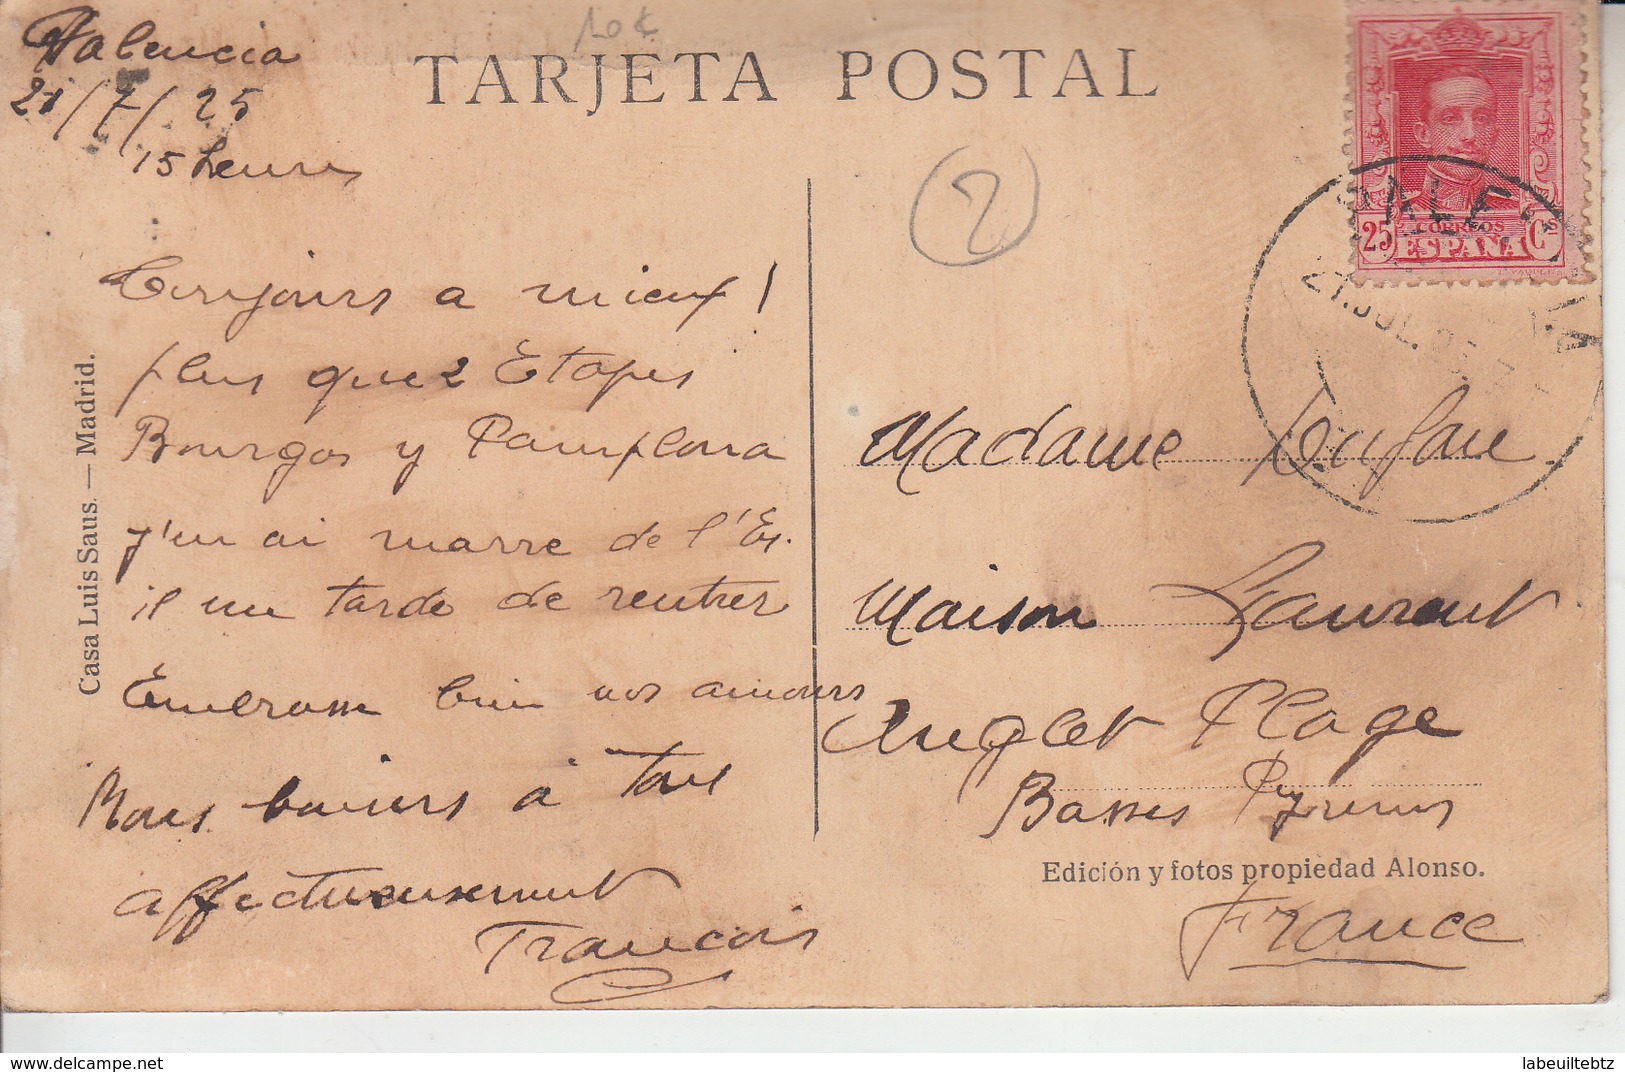 Valencia
21/7/25
15 heures
TARJETA POSTAL
10 €
2
Toujours a mieux !
plus que 2 Etapes
Bourgos y Pamplona
j'en ai marre de l'Es.
il me tarde de rentrer
Embrasse bien nos amours
Nous baisers à tous
affectueusement
François
Casa Luis Saus. — Madrid.
25 CORREOS Cs
ESPAÑA
21.JUL.25.7
Madame
Maison Laurent
Anglet Plage
Basses Pyrenees
Edición y fotos propiedad Alonso.
France
www.delcampe.net
labeuiltebtz